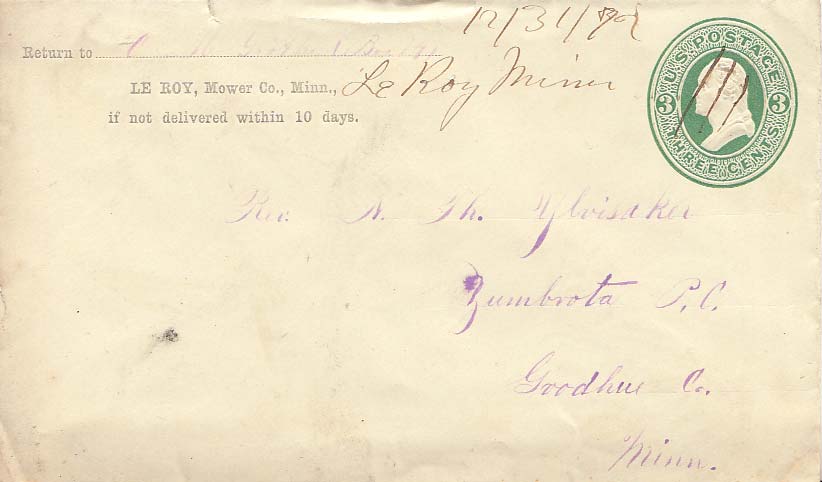 12/31/
Return to
LE ROY, Mower Co., Minn., Le Roy Minn
if not delivered within 10 days.
U.S. POSTAGE
3 3
THREE CENTS
Rev. N. Th. Ylvisaker
Zumbrota P.C.
Goodhue Co.
Minn.